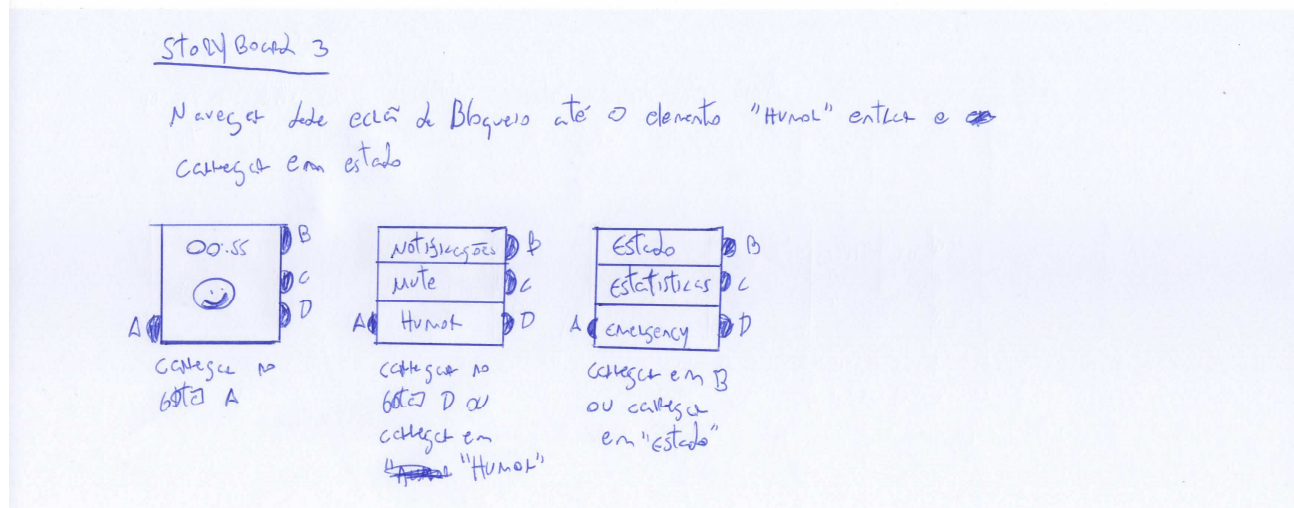 StoryBoard 3
Navegar desde ecrã de Bloqueio até o elemento "Humor" entrar e
carregar em estado
00:55
B
C
D
A
carregar no
botão A
Notificações B
Mute C
A Humor D
carregar no
botão D ou
carregar em
"Humor"
Estado B
Estatisticas C
A Emergency D
carregar em B
ou carregar
em "Estado"